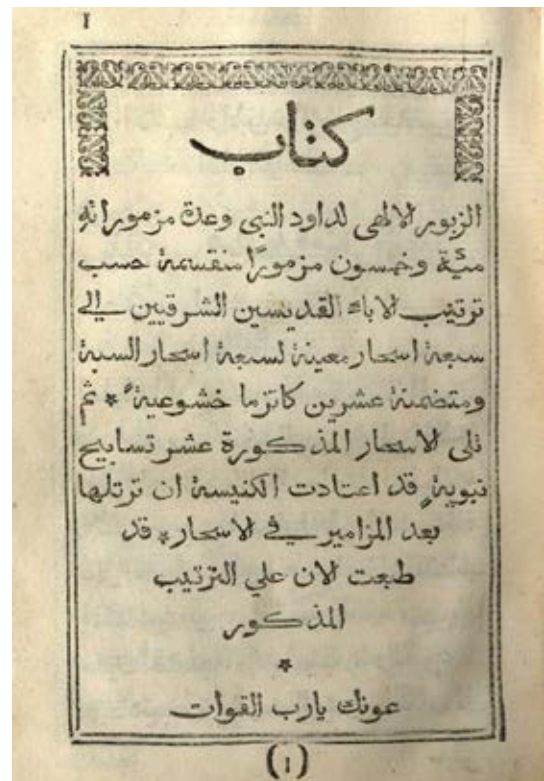 1
كتاب
الزبور الالهي لداود النبي وعدة مزموراته
مية وخمسون مزمورًا منقسمة حسب
ترتيب الاباء القديسين الشرقيين الي
سبعة اسحار معينة لسبعة اسحار السبة
ومتضمنة عشرين كاتزما خشوعية * ثم
تلي الاسحار المذكورة عشر تسابيح
نبوية قد اعتادت الكنيسة ان ترتلها
بعد المزامير في الاسحار * قد
طبعت الان علي الترتيب
المذكور
*
عونك يارب القوات
(١)